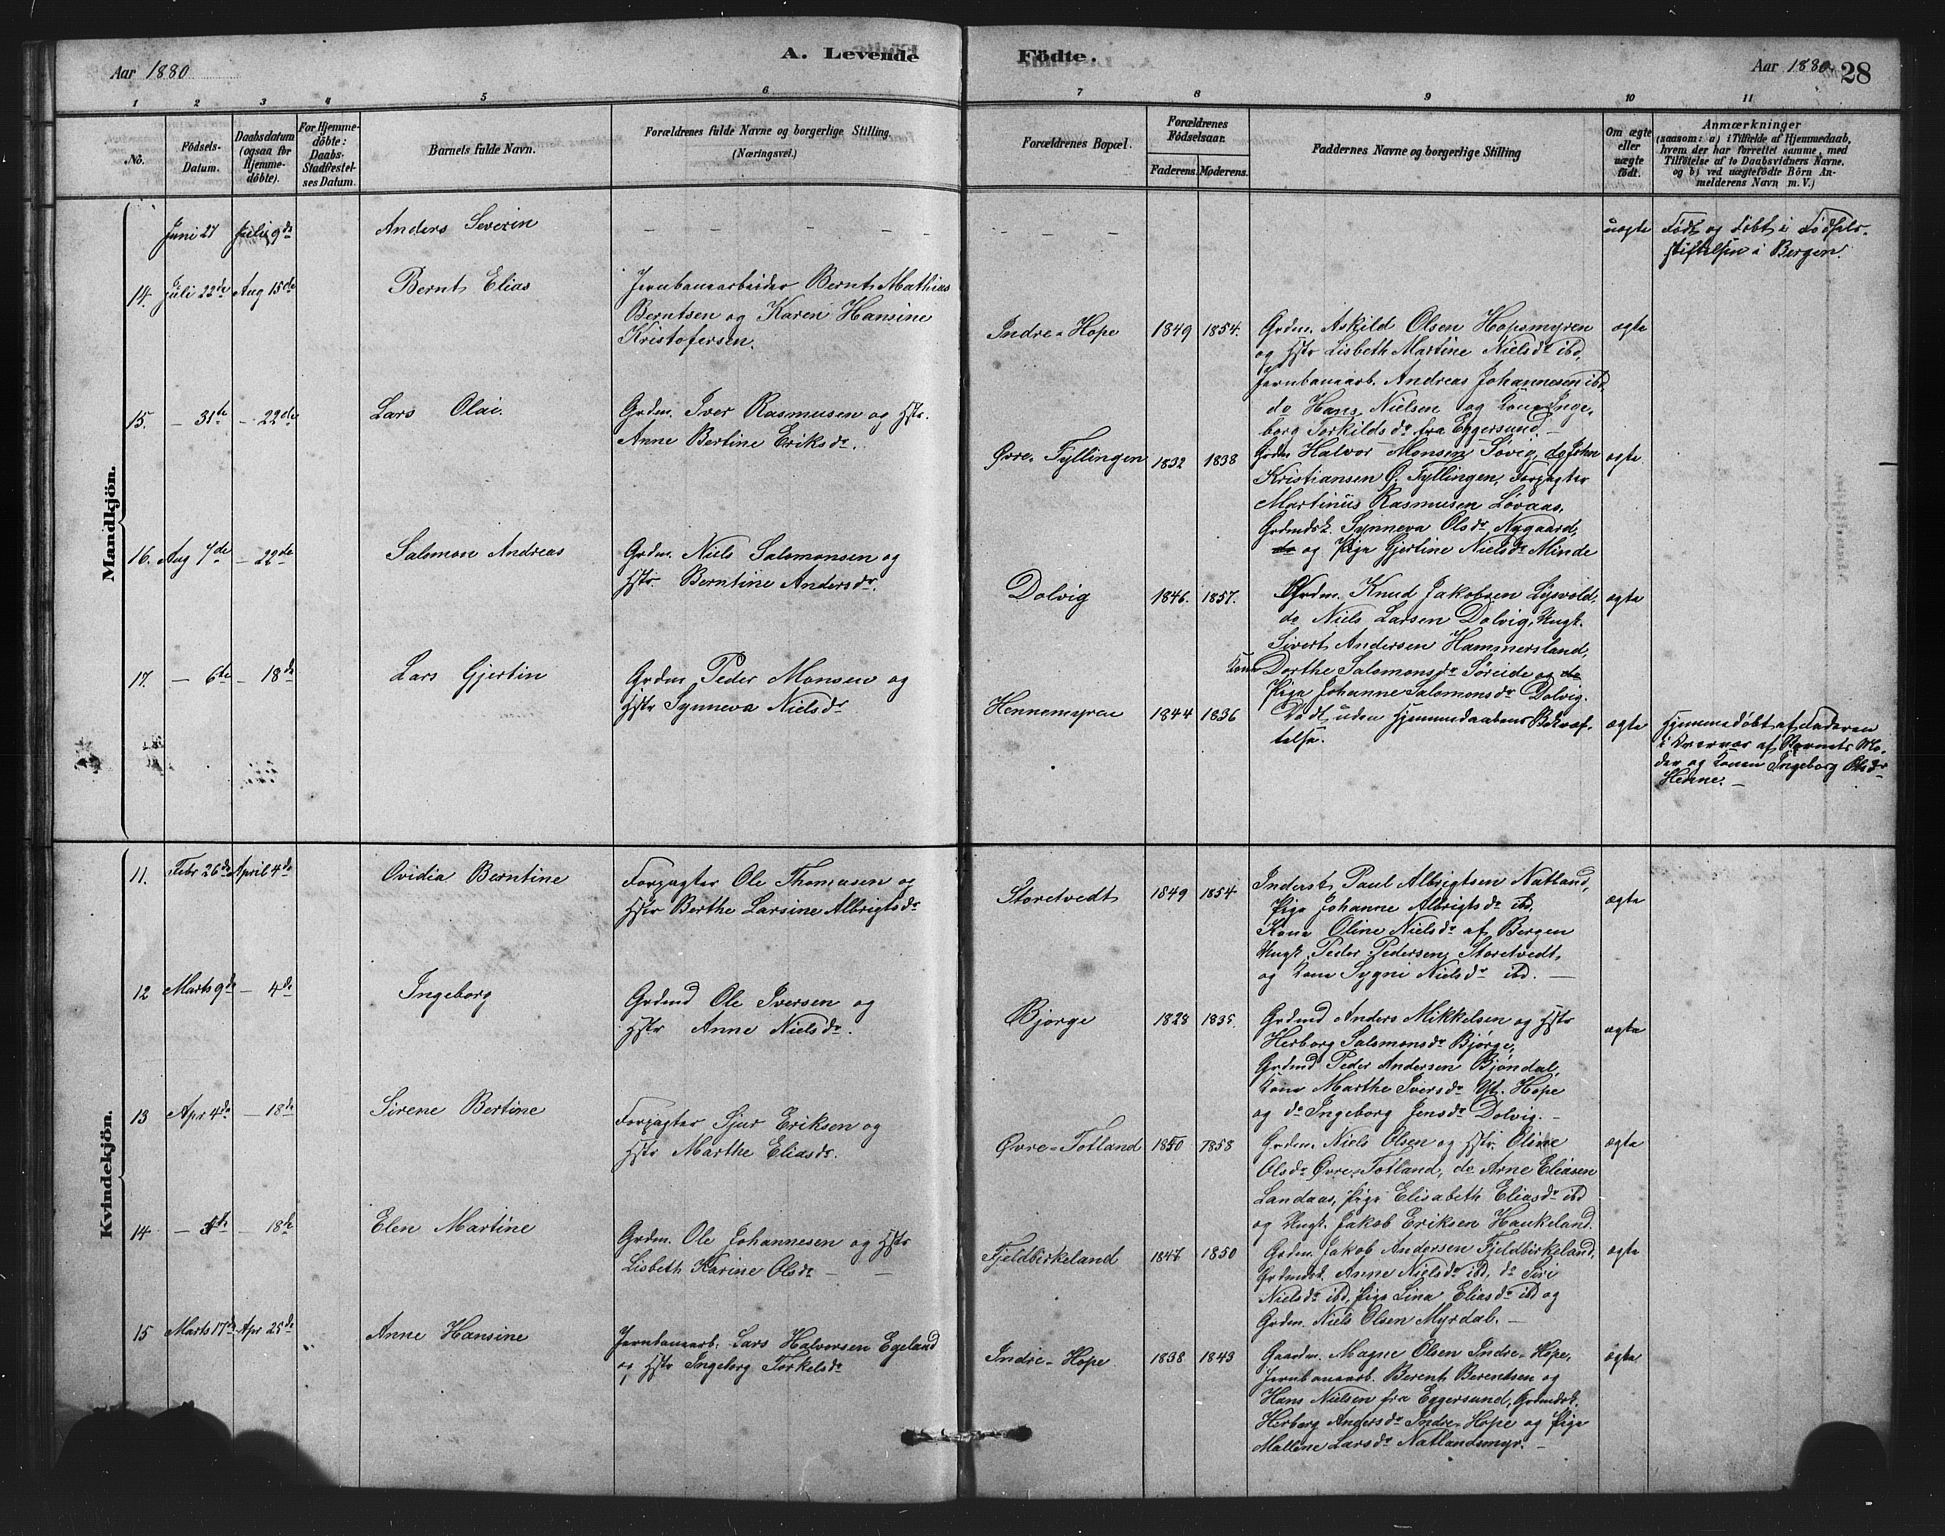 Aar 1880
A. Levende
Födte.
Aar 1880
28
1 2 3 4 5 6 7 8 9 10 11
No.
Födsels-
Datum.
Daabsdatum
(ogsaa for
Hjemme-
döbte).
For Hjemme-
döbte:
Daabs-
Stadfæstel-
ses Datum.
Barnets fulde Navn.
Forældrenes fulde Navne og borgerlige Stilling.
(Næringsvei.)
Forældrenes Bopæl.
Forældrenes
Födselsaar.
Faderens. Moderens.
Faddernes Navne og borgerlige Stilling
Om ægte
eller
uægte
födt.
Anmærkninger
(saasom: a) i Tilfælde af Hjemmedaab,
hvem der har forrettet samme, med
Tilföielse af to Daabsvidners Navne,
og b) ved uægtefödte Börn An-
melderens Navn m. V.)
Mandkjön.
Juni 27 Juli 9de
Anders Severin
— — — — — —
uægte
Født og døbt i Fødsels-
stiftelsen i Bergen.
14. Juli 22de Aug 15de
Bernt Elias
Jernbanearbeider Bernt Mathias
Berntsen og Karen Hansine
Kristofersen.
Indre-Hope
1849 1854.
Grdm. Askild Olsen Hopsmyren
og Hstr Lisbeth Martine Nielsdr ibd,
Jernbanearb. Andreas Johannesen ibd
do Hans Nielsen og Kone Inge-
borg Torkildsdr fra Eggersund
ægte
15. — 31te — 22de
Lars Olai.
Grdm. Iver Rasmusen og Hstr.
Anne Bertine Eriksdr.
Øvre-Fyllingen
1832 1838
Grdm Halvor Monsen Søvig, do John
Kristiansen Ø. Fyllingen, Forpagter
Martinus Rasmusen Løvaas,
Grdmdsk. Synneva Olsdr Nygaard,
do og Pige Gjertine Nielsdr Minde
ægte
16. Aug 7de — 22de
Salomon Andreas
Grdm. Niels Salomonsen og
Hstr. Berntine Andersdr.
Dolvig
1846. 1857.
Grdm. Knud Jakobsen
do Niels Larsen Dolvig, Ungk.
Sivert Andersen Hammersland,
Kone Dorthe Salomonsdr Søreide og do
Pige Johanne Salomonsdr Dolvig.
ægte
17. — 6te — 18de
Lars Gjertin
Grdm Peder Monsen og
Hstr Synneva Nielsdr
Hennemyren
1844 1836
Død uden Hjemmedaabens Bekræf-
telse.
ægte
Hjemmedøbt af Faderen
i Nærvær af Barnets Mo-
der og Konen Ingeborg Olsdr
Henne. —
Kvindekjön.
11. Febr 26de April 4de
Ovidia Berntine
Forpagter Ole Thomasen og
Hstr Berthe Larsine Albrigtsdr
Storetvedt
1849 1854
Inderst Paul Albrigtsen Natland,
Pige Johanne Albrigtsdr ibd,
Kone Oline Nielsdr af Bergen
Ungk. Peder Pedersen Storetvedt,
og Kone Sygni Nielsdr ibd. —
ægte
12 Marts 9de — 4de
Ingeborg
Grdmd Ole Iversen og
Hstr Anne Nielsdr.
Bjørge
1828 1835.
Grdmd Anders Mikkelsen og Hstr
Herborg Salomonsdr Bjørge,
Grdmd Peder Andersen Bjøndal,
Kone Marthe Iversdr Yt. Hope
og do Ingeborg Jensdr Dolvig. —
ægte
13 Apr 4de — 18de
Sirene Bertine
Forpagter Sjur Eriksen og
Hstr Marthe Eliasdr.
Øvre-Totland
1850 1858
Grdm. Niels Olsen og Hstr Oline
Olsdr Øvre-Totland, do Arne Eliasen
Landaas, Pige Elisabeth Eliasdr ibd
og Ungk. Jakob Eriksen Haukeland.
ægte
14 — 5te — 18de
Elen Martine
Grdm. Ole Johannesen og Hstr
Lisbeth Karine Olsdr — —
Fjeldbirkeland
1847 1850
Grdm. Jakob Andersen Fjeldbirkeland,
Grdmdsk. Anne Nielsdr ibd, do Siri
Nielsdr ibd, Pige Lina Eliasdr ibd og
Grdm. Niels Olsen Myrdal. —
ægte
15 Marts 17de Apr 25de
Anne Hansine
Jernbanearb. Lars Halvorsen Egeland
og Hstr Ingeborg Torkelsdr
Indre-Hope
1838 1843
Gaardm. Magne Olsen Indre-Hope,
Jernbanearb. Berent Berentsen og
Hans Nielsen fra Eggersund, Grdmdsk.
Herborg Andersdr Indre-Hope og Pige
Mallene Larsdr Natlandsmyr. —
ægte